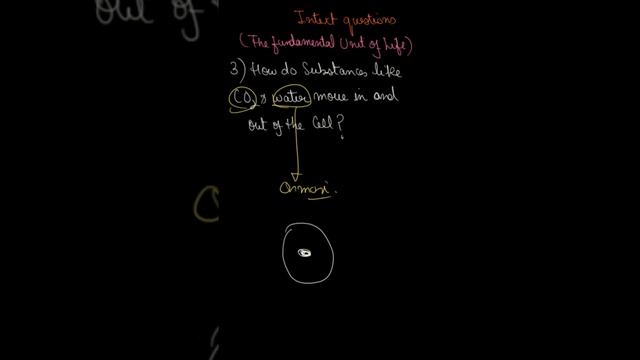 Intext questions
(The fundamental Unit of Life)
3) How do Substances like
CO2 & water move in and
out of the Cell?
Osmosi.